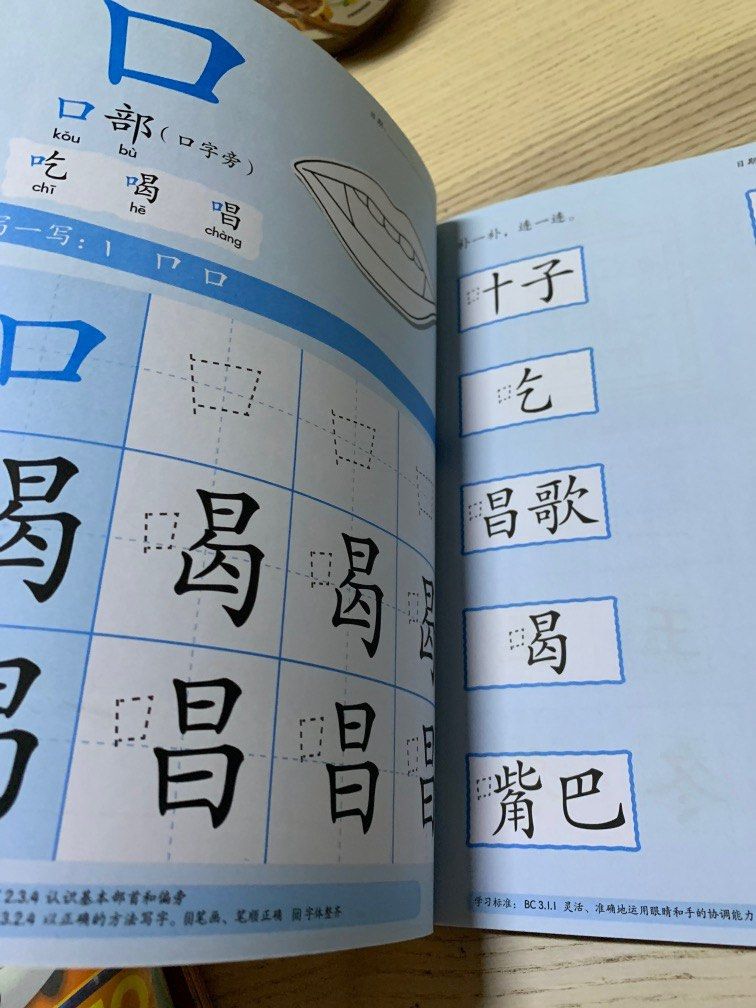 口
口部（口字旁）
kǒu bù
吃 喝 唱
chī hē chàng
一写：丨 冂 口
口 口 口 口
喝 喝 喝
唱 唱 唱
2.3.4 认识基本部首和偏旁
3.2.4 以正确的方法写字。(i)笔画、笔顺正确 (ii)字体整齐
日期
日期
补一补，连一连。
叶子
吃
唱歌
喝
嘴巴
学习标准： BC 3.1.1 灵活、准确地运用眼睛和手的协调能力